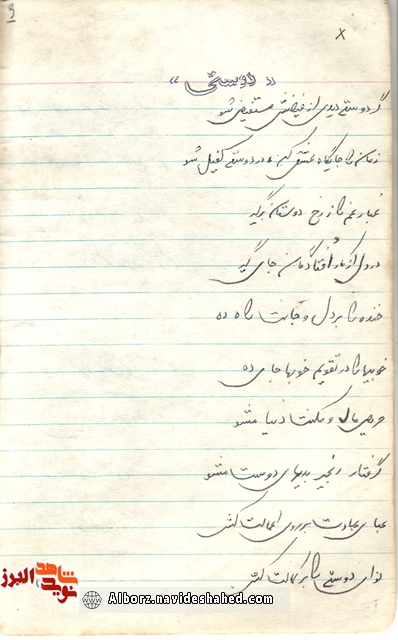 و
x
« دوستی »
گر دوستی دیدی از فیضش مستفیض شو
زمان را جایگاه عشق کن و در دوستی کفیل شو
غبار غم را از رخ دوستان برگیر
در دل از کار افتادگان جای گیر
خنده را بر دل و جانت راه ده
خوبیها را در تقویم خوبها جای ده
حریص مال و مکنت دنیا مشو
گرفتار زنجیر بدیهای دوست مشو
عبای عبادت بر روی اعمالت کش
لوای دوستی را بر کمالت کش
نوید شاهد البرز
Alborz.navideshahed.com